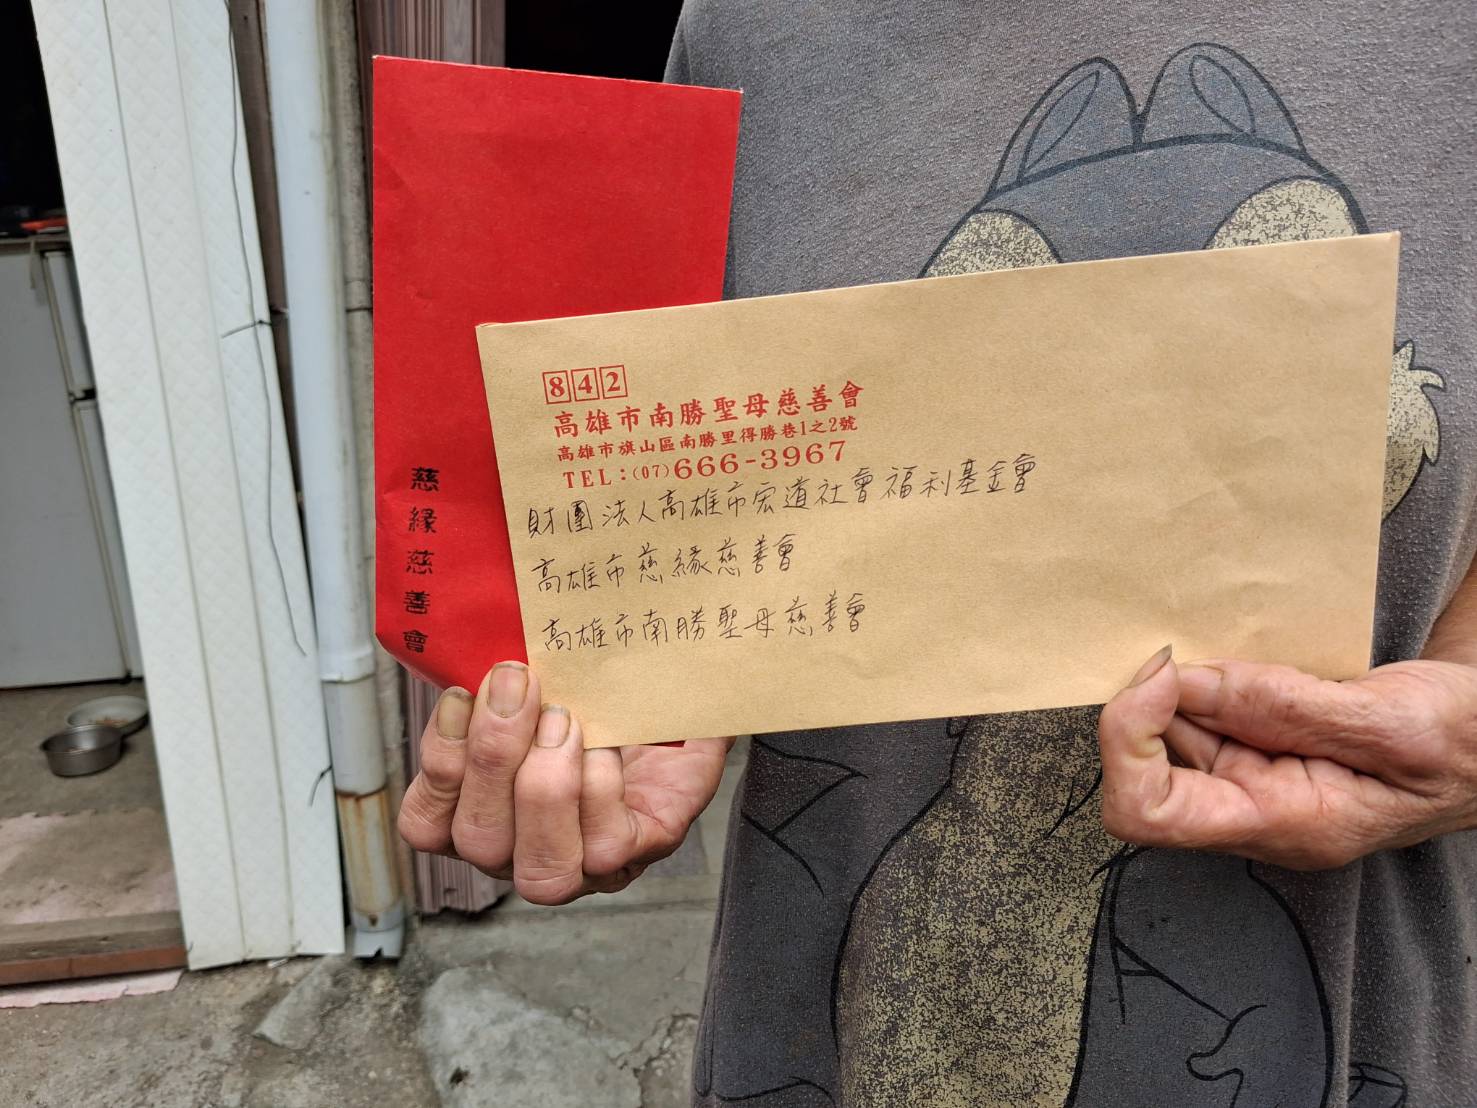 慈緣慈善會
842
高雄市南勝聖母慈善會
高雄市旗山區南勝里得勝巷1之2號
TEL:(07)666-3967
財團法人高雄市宏道社會福利基金會
高雄市慈緣慈善會
高雄市南勝聖母慈善會